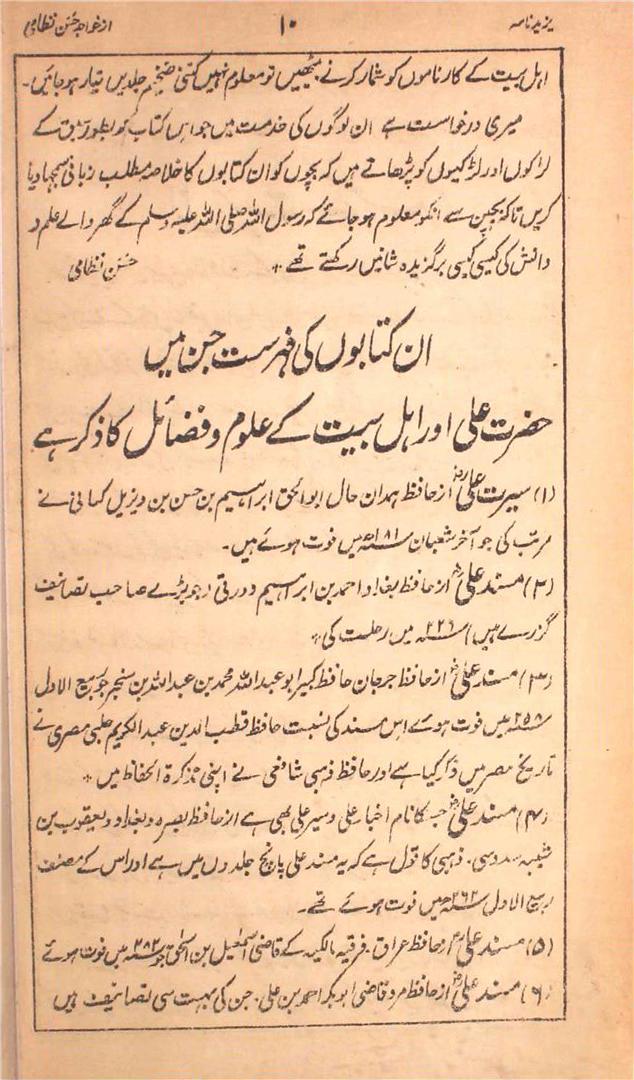 یزید نامہ
۱۰
از خواجہ حسن نظامی
اہل بیت کے کارناموں کو شمار کرنے بیٹھیں تو معلوم نہیں کتنی ضخیم جلدیں تیار ہو جائیں۔
میری درخواست ہے ان لوگوں کی خدمت میں جو اس کتاب کو بطور سبق کے
لڑکوں اور لڑکیوں کو پڑھاتے ہیں کہ بچوں کو ان کتابوں کا خلاصہ مطلب زبانی سمجھا دیا
کریں تاکہ بچپن سے انکو معلوم ہو جائے کہ رسول اللہ صلی اللہ علیہ وسلم کے گھر والے علم و
دانش کی کیسی کیسی برگزیدہ شانیں رکھتے تھے ۔ حسن نظامی
ان کتابوں کی فہرست جن میں
حضرت علی اور اہل بیت کے علوم و فضائل کا ذکر ہے
(۱) سیرت علیؓ از حافظ ہمدان حال ابو الحق ابراہیم بن حسن بن ویزیل کسائی نے
مرتب کی جو آخر شعبان ۱۸۱ھ میں فوت ہوئے ہیں۔
(۲) مسند علیؓ از حافظ بغداد احمد بن ابراہیم دورقی (جو بڑے صاحب تصانیف
گزرے ہیں) ۲۲۶ھ میں رحلت کی ۔
(۳) مسند علیؓ از حافظ جرجان حافظ کبیر ابو عبداللہ محمد بن عبداللہ بن سنجر جو ربیع الاول
۲۵۸ھ میں فوت ہوئے اس مسند کی نسبت حافظ قطب الدین عبدالکریم حلبی مصری نے
تاریخ مصر میں ذکر کیا ہے اور حافظ ذہبی شافعی نے اپنی تذکرۃ الحفاظ میں ۔
(۴) مسند علیؓ جس کا نام اخبار علی و سیر علی بھی ہے از حافظ بصرہ و بغداد و یعقوب بن
شیبہ سدوسی۔ ذہبی کا قول ہے کہ یہ مسند علی پانچ جلدوں میں ہے اور اس کے مصنف
ربیع الاول ۲۶۲ھ میں فوت ہوئے تھے۔
(۵) مسند علیؓ از حافظ عراق۔ فرقیہ مالکیہ کے قاضی اسمٰعیل بن اسحٰق جو ۲۸۲ھ میں فوت ہوئے
(۶) مسند علیؓ از حافظ مرو قاضی ابوبکر احمد بن علی۔ جن کی بہت سی تصانیف ہیں